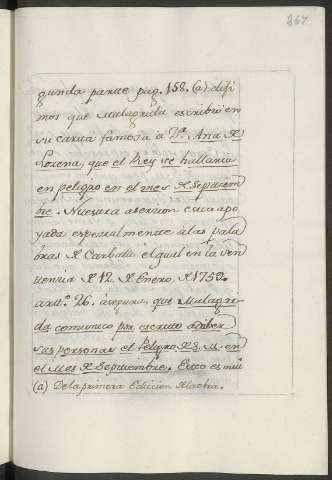 267
gunda parte pag. 158. (a) diji
mos que Malagrida escribio en
su carta famosa à Dª. Ana de
Lorena, que el Rey se hallaria
en peligro en el mes de Septiem
bre. Nuestra asercion està apo
yada especialmente à las pala
bras de Carballo el qual en la Sen
tencia de 12 de Enero, de 1759.
artº. 26. asegura, que Malagri
da comunico por escrito à diber
sas personas el Peligro de S. M. en
el Mes de Septiembre. Esto es mui
(a) De la primera Edicion de la obra.